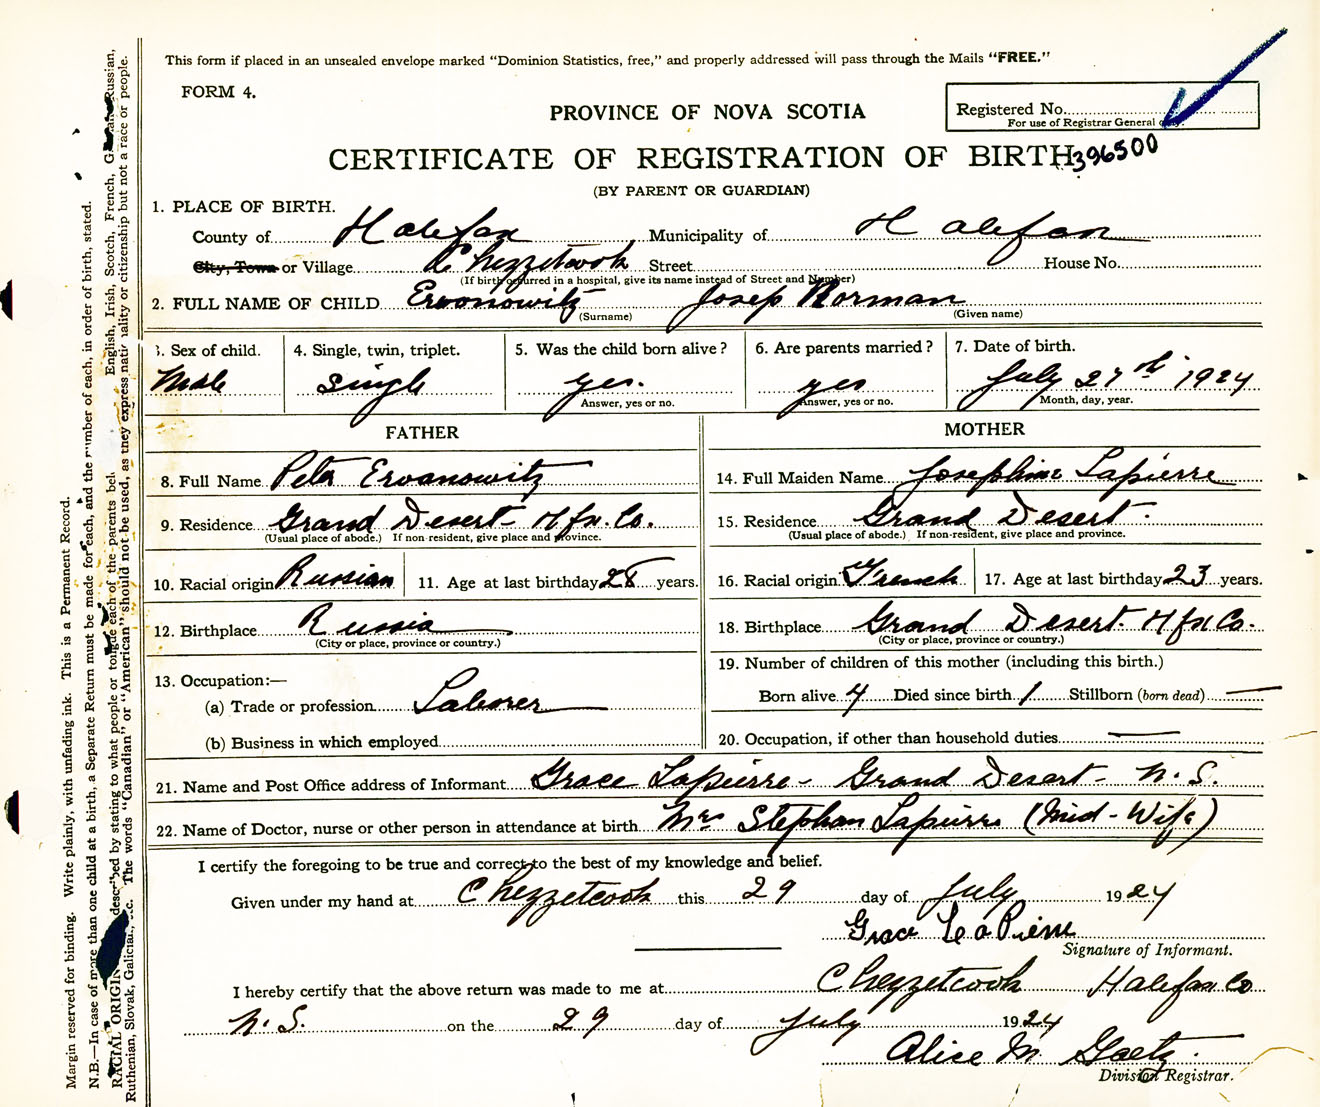 This form if placed in an unsealed envelope marked "Dominion Statistics, free," and properly addressed will pass through the Mails "FREE."
FORM 4.
PROVINCE OF NOVA SCOTIA
Registered No.
For use of Registrar General
396500
CERTIFICATE OF REGISTRATION OF BIRTH
(BY PARENT OR GUARDIAN)
1. PLACE OF BIRTH.
County of Halifax Municipality of Halifax
City, Town or Village Chezzetcook Street House No.
(If birth occurred in a hospital, give its name instead of Street and Number)
2. FULL NAME OF CHILD Ervonowitz Josep Norman
(Surname) (Given name)
3. Sex of child. 4. Single, twin, triplet. 5. Was the child born alive? 6. Are parents married? 7. Date of birth.
Male Single yes. yes July 27th 1924
Answer, yes or no. Answer, yes or no. Month, day, year.
FATHER MOTHER
8. Full Name Peter Ervanowitz 14. Full Maiden Name Josephine Lapierre
9. Residence Grand Desert - Hfx. Co. 15. Residence Grand Desert.
(Usual place of abode.) If non-resident, give place and province. (Usual place of abode.) If non-resident, give place and province.
10. Racial origin Russian 11. Age at last birthday 28 years. 16. Racial origin French 17. Age at last birthday 23 years.
12. Birthplace Russia 18. Birthplace Grand Desert. Hfx Co.
(City or place, province or country.) (City or place, province or country.)
13. Occupation:— 19. Number of children of this mother (including this birth.)
(a) Trade or profession Laborer Born alive 4 Died since birth 1 Stillborn (born dead) —
(b) Business in which employed 20. Occupation, if other than household duties —
21. Name and Post Office address of Informant Grace Lapierre - Grand Desert - N. S.
22. Name of Doctor, nurse or other person in attendance at birth Mrs Stephen Lapierre (Mid-Wife)
I certify the foregoing to be true and correct to the best of my knowledge and belief.
Given under my hand at Chezzetcook this 29 day of July 1924
Grace LaPierre
Signature of Informant.
I hereby certify that the above return was made to me at Chezzetcook Halifax Co
N.S. on the 29 day of July 1924
Alice M. Gaetz.
Division Registrar.
Margin reserved for binding. Write plainly, with unfading ink. This is a Permanent Record.
N.B.—In case of more than one child at a birth, a Separate Return must be made for each, and the number of each, in order of birth, stated.
RACIAL ORIGIN described by stating to what people or tongue each of the parents English, Irish, Scotch, French, Russian,
Ruthenian, Slovak, Galician, etc. The words "Canadian" or "American" should not be used, as they express nationality or citizenship but not a race or people.